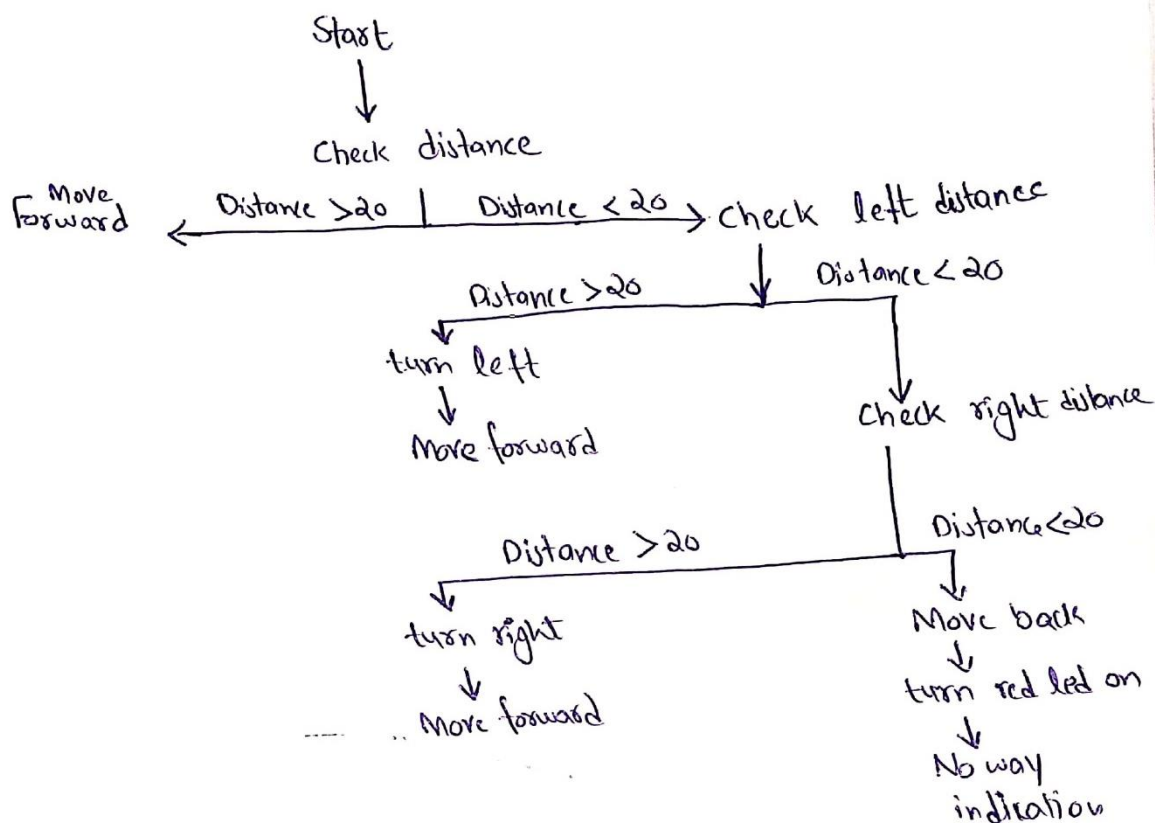 Start
Check distance
Move
forward
Distance >20
Distance <20
Check left distance
Distance >20
Distance <20
turn left
Move forward
Check right distance
Distance >20
Distance <20
turn right
Move forward
Move back
turn red led on
No way
indication